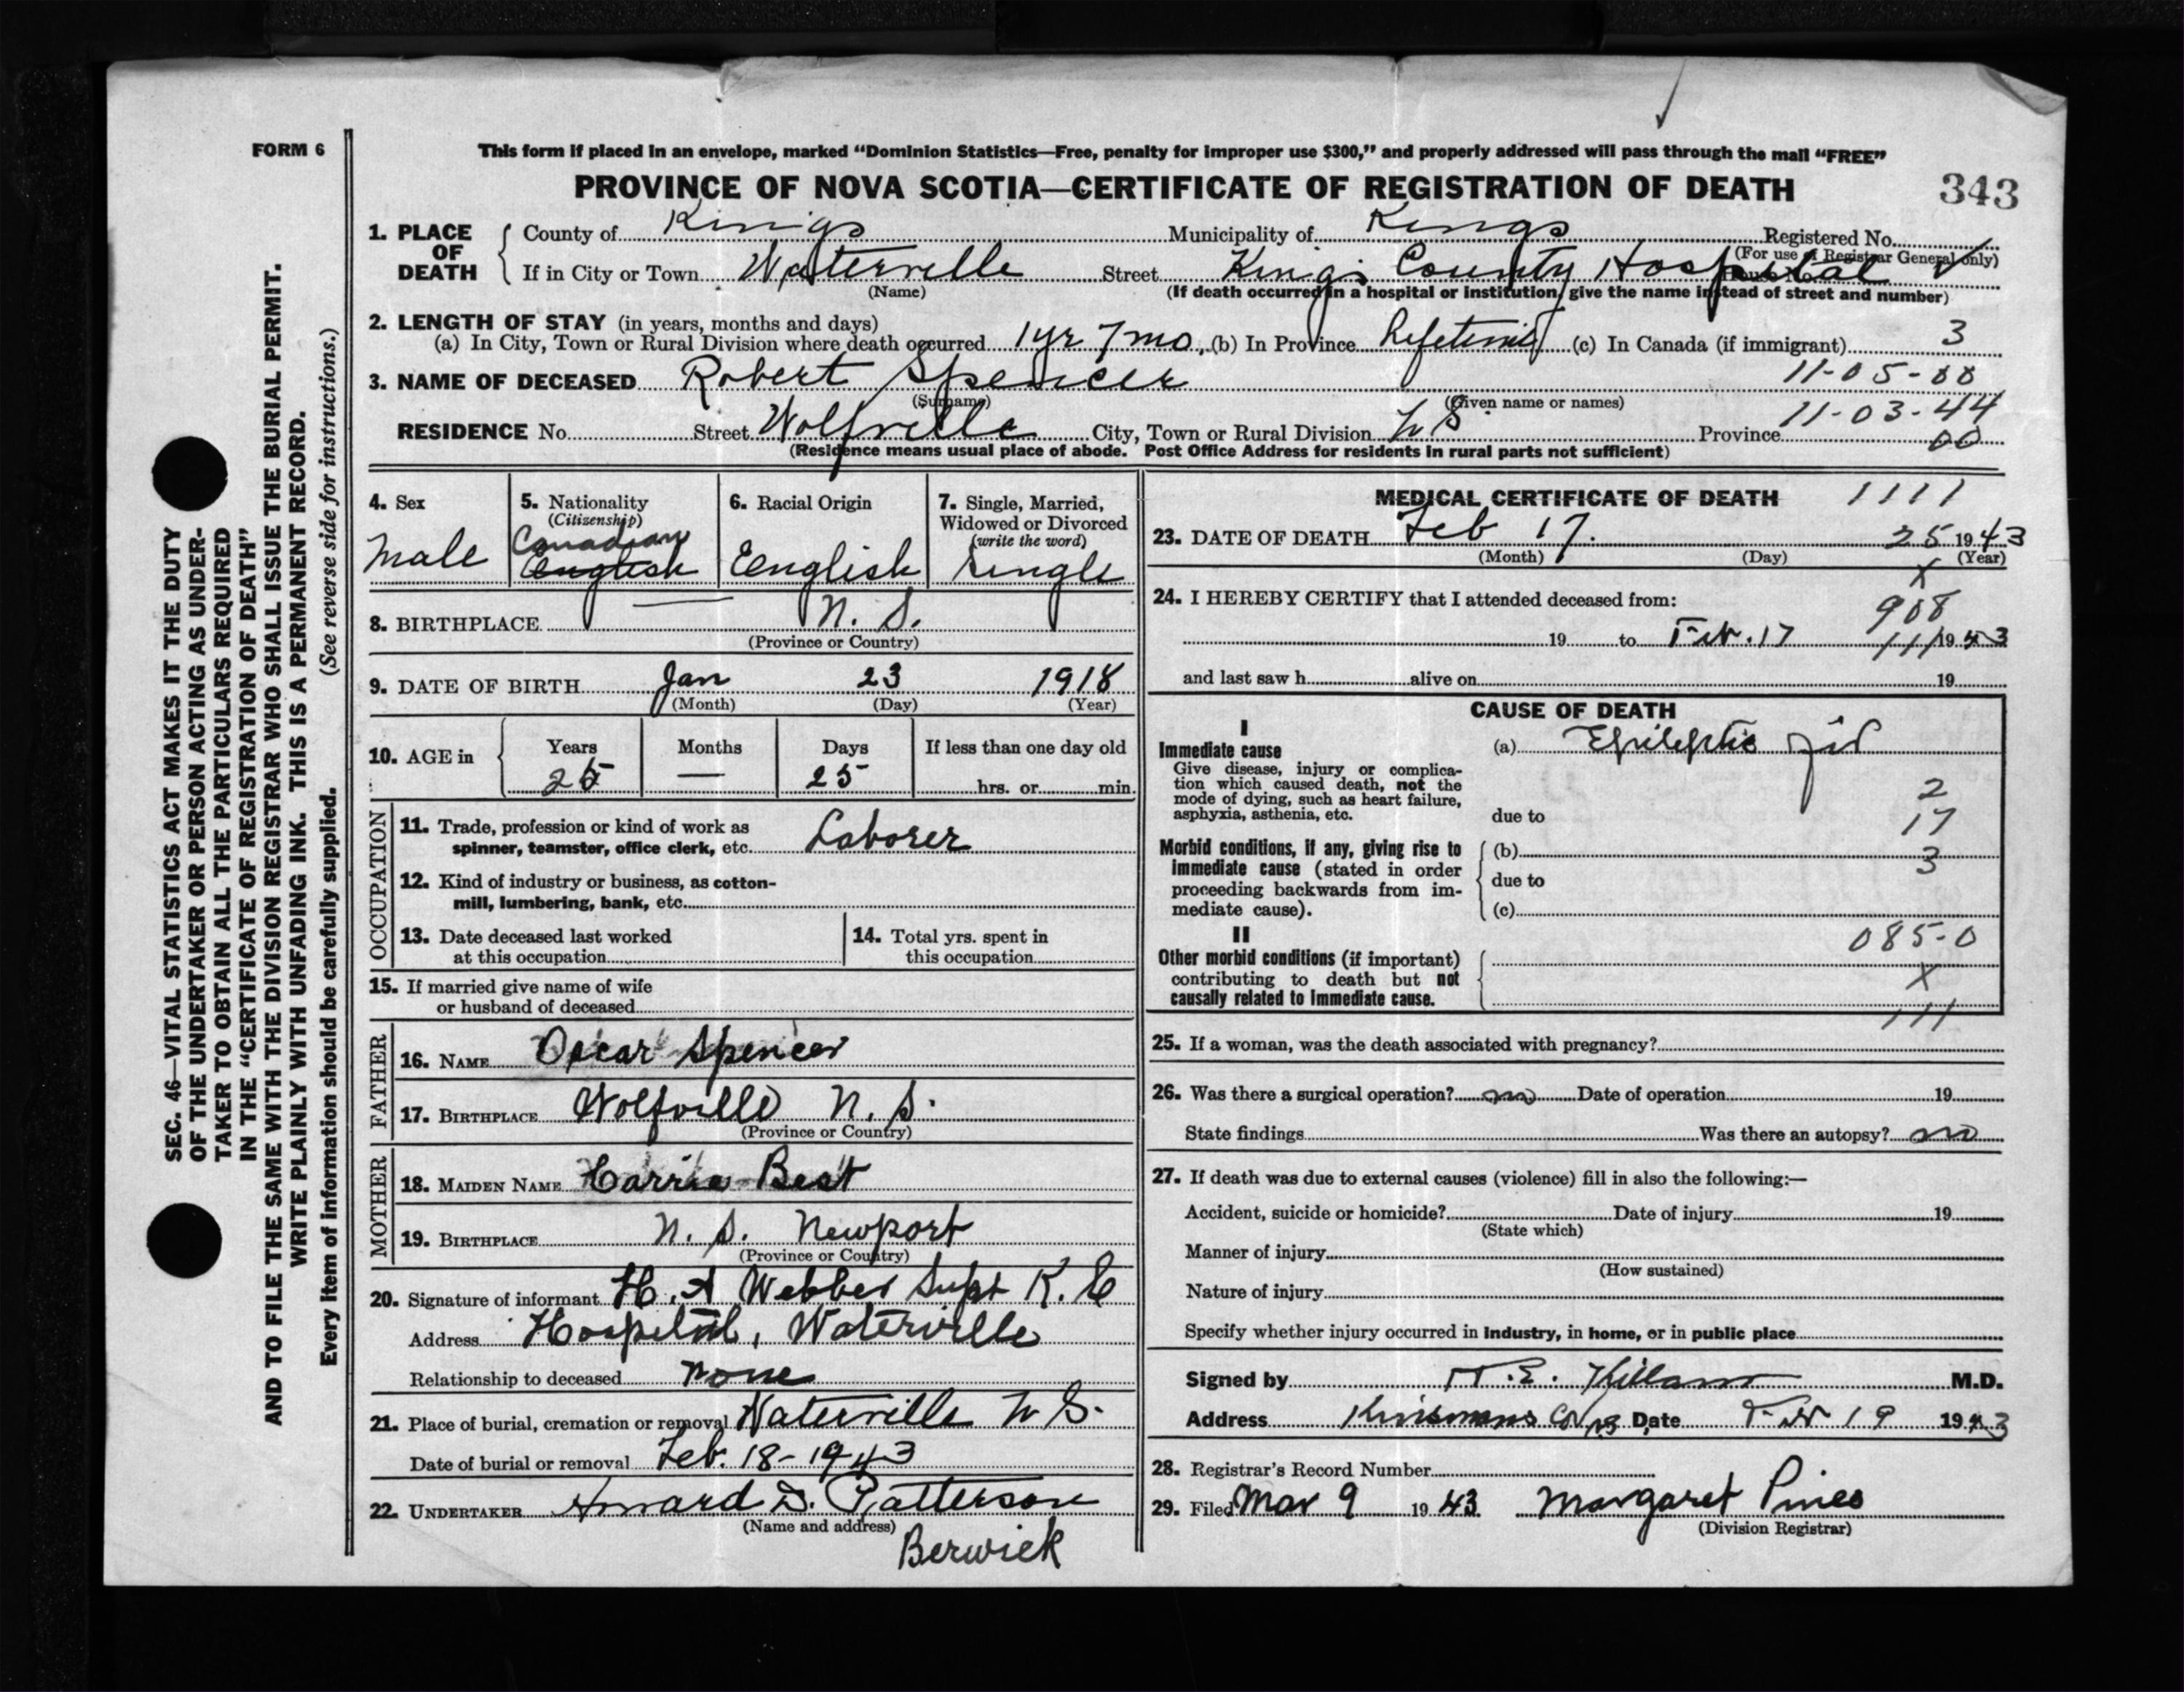 FORM 6
This form if placed in an envelope, marked “Dominion Statistics—Free, penalty for improper use $300,” and properly addressed will pass through the mail “FREE”
PROVINCE OF NOVA SCOTIA—CERTIFICATE OF REGISTRATION OF DEATH
343
1. PLACE OF DEATH
County of Kings Municipality of Kings Registered No.
(For use of Registrar General only)
If in City or Town Waterville Street Kings County Hospital
(Name) (If death occurred in a hospital or institution, give the name instead of street and number)
2. LENGTH OF STAY (in years, months and days)
(a) In City, Town or Rural Division where death occurred 1 yr 7 mo, (b) In Province Lifetime (c) In Canada (if immigrant) 3
3. NAME OF DECEASED Robert Spencer 11-05-00
(Surname) (Given name or names) 11-03-44
RESIDENCE No. Street Wolfville City, Town or Rural Division N S Province 00
(Residence means usual place of abode. Post Office Address for residents in rural parts not sufficient)
4. Sex
Male
5. Nationality
(Citizenship)
Canadian
English
6. Racial Origin
English
7. Single, Married,
Widowed or Divorced
(write the word)
Single
8. BIRTHPLACE N. S.
(Province or Country)
9. DATE OF BIRTH Jan 23 1918
(Month) (Day) (Year)
10. AGE in
Years Months Days If less than one day old
25 — 25 hrs. or min.
OCCUPATION
11. Trade, profession or kind of work as
spinner, teamster, office clerk, etc. Laborer
12. Kind of industry or business, as cotton-
mill, lumbering, bank, etc.
13. Date deceased last worked
at this occupation
14. Total yrs. spent in
this occupation
15. If married give name of wife
or husband of deceased
FATHER
16. NAME Oscar Spencer
17. BIRTHPLACE Wolfville N. S.
(Province or Country)
MOTHER
18. MAIDEN NAME Carrie Best
19. BIRTHPLACE N. S. Newport
(Province or Country)
20. Signature of informant H. A Webber Supt K. C
Address Hospital, Waterville
Relationship to deceased none
21. Place of burial, cremation or removal Waterville N S.
Date of burial or removal Feb. 18-1943
22. UNDERTAKER Howard D. Patterson
(Name and address)
Berwick
MEDICAL CERTIFICATE OF DEATH 1111
23. DATE OF DEATH Feb 17. 25 1943
(Month) (Day) (Year)
X
24. I HEREBY CERTIFY that I attended deceased from: 908
19 to Feb. 17 111 1943
and last saw h alive on 19
CAUSE OF DEATH
I
Immediate cause
Give disease, injury or complica-
tion which caused death, not the
mode of dying, such as heart failure,
asphyxia, asthenia, etc.
(a) Epileptic fit
2
due to 17
Morbid conditions, if any, giving rise to
immediate cause (stated in order
proceeding backwards from im-
mediate cause).
(b) 3
due to
(c)
II
Other morbid conditions (if important)
contributing to death but not
causally related to immediate cause.
085-0
X
111
25. If a woman, was the death associated with pregnancy?
26. Was there a surgical operation? no Date of operation 19
State findings Was there an autopsy? no
27. If death was due to external causes (violence) fill in also the following:—
Accident, suicide or homicide? Date of injury 19
(State which)
Manner of injury
(How sustained)
Nature of injury
Specify whether injury occurred in industry, in home, or in public place
Signed by E. Killam M.D.
Address Kinsmans Cor NS Date Feb 19 1943
28. Registrar's Record Number
29. Filed Mar 9 1943 Margaret Pines
(Division Registrar)
SEC. 46—VITAL STATISTICS ACT MAKES IT THE DUTY
OF THE UNDERTAKER OR PERSON ACTING AS UNDER-
TAKER TO OBTAIN ALL THE PARTICULARS REQUIRED
IN THE “CERTIFICATE OF REGISTRATION OF DEATH”
AND TO FILE THE SAME WITH THE DIVISION REGISTRAR WHO SHALL ISSUE THE BURIAL PERMIT.
WRITE PLAINLY WITH UNFADING INK. THIS IS A PERMANENT RECORD.
Every item of information should be carefully supplied. (See reverse side for instructions.)